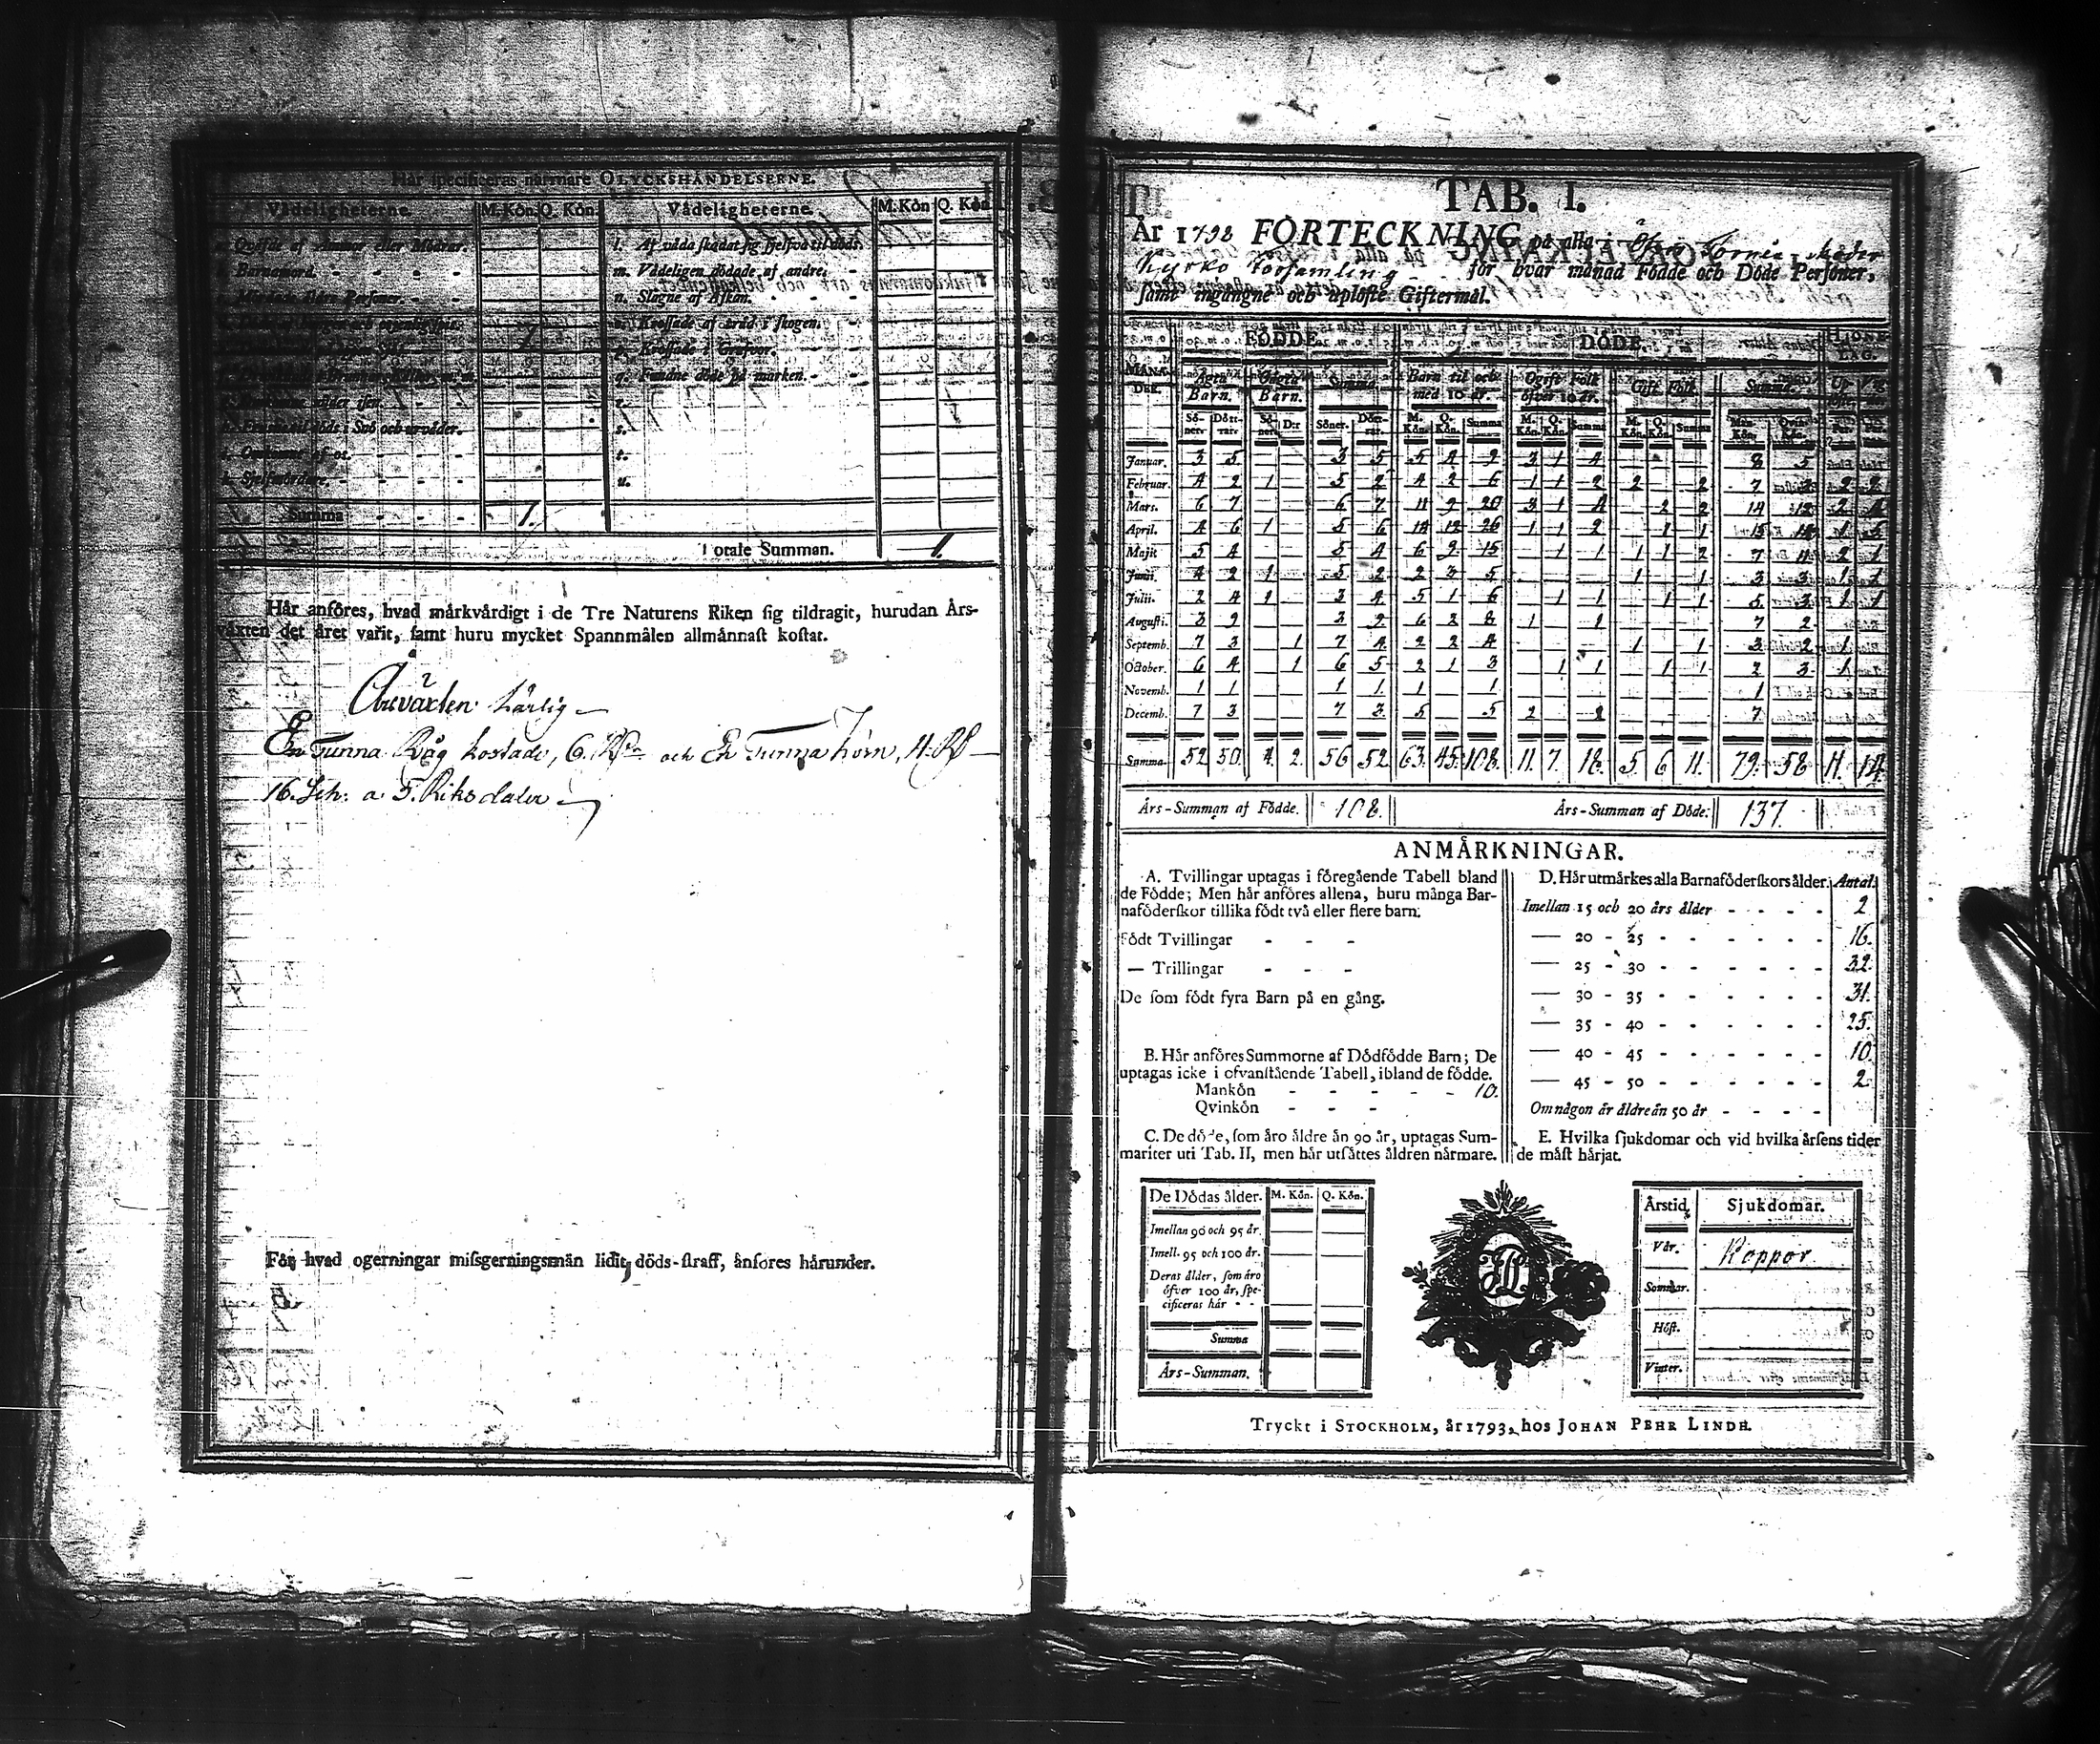 Här specificeras närmare OLYCKSHÄNDELSERNE.
Vådeligheterne. M. Kön. Q. Kön. Vådeligheterne. M. Kön Q. Kön
Qväfde af Ammor eller Mödrar. l. Af våda skadat sig sjelfva til döds.
Barnamord. m. Vådeligen dödade af andre.
Mördade äldre Personer. n. Slagne af Åskan.
1 o. Krossade af träd i skogen.
p. Krossade i Grufvor.
q. Fundne döde på marken.
r.
h. Frusne til döds i Snö och urväder. s.
i. Omkomne af os. t.
k. Sjelfmördare. u.
Summa 1.
Totale Summan. 1.
Här anföres, hvad märkvärdigt i de Tre Naturens Riken sig tildragit, hurudan Års-
växten det året varit, samt huru mycket Spannmålen allmännast kostat.
Årsväxten härlig
En Tunna Råg kostade, 6. Rdr och En Tunna Korn, 4. Rd
16. Sch: a 5. Riksdaler
För hvad ogerningar missgerningsmän lidit döds-straff, anföres härunder.
TAB. I.
År 1798 FÖRTECKNING på alla i Öfver Torneå moder
Kyrko Församling för hvar månad Födde och Döde Personer,
samt ingångne och uplöste Giftermål.
FÖDDE. DÖDE. HJONE-LAG.
MÅNA-DER. Ägta Barn. Oägta Barn. Summa. Barn til och med 10 år. Ogift Folk öfver 10 år. Gift Folk. Summa.
Sö-ner. Dött-rar. Sö-ner. D:r Söner. Dött-rar. M. Kön. Q. Kön. Summa M. Kön. Q. Kön. Summa M. Kön. Q. Kön. Summa Man-Kön. Qvin-Kön.
Januar. 3 5 3 5 5 4 9 3 1 4 8 5
Februar. 4 2 1 5 2 4 2 6 1 1 2 2 2 7 2 2
Mars. 6 7 6 7 11 9 20 3 1 4 2 2 14 12 2
April. 4 6 1 5 6 14 12 26 1 1 2 1 1 15 14 1 5
Maji. 5 4 5 4 6 9 15 1 1 1 1 2 7 11 2 1
Junii. 4 2 1 5 2 2 3 5 1 1 3 3 1 1
Julii. 2 4 1 3 4 5 1 6 1 1 1 1 5 3 1 1
Augusti. 3 9 3 9 6 2 8 1 1 7 2
Septemb. 7 3 1 7 4 2 2 4 1 1 3 2 1
October. 6 4 1 6 5 2 1 3 1 1 1 1 2 3 1
Novemb. 1 1 1 1 1 1 1
Decemb. 7 3 7 3 5 5 2 2 7
Summa 52 50 4. 2. 56 52 63. 45. 108. 11. 7. 18. 5. 6 11. 79. 58 11. 14.
Års-Summan af Födde. 108. Års-Summan af Döde: 137.
ANMÄRKNINGAR.
A. Tvillingar uptagas i föregående Tabell bland
de Födde; Men här anföres allena, huru många Bar-
naföderskor tillika födt två eller flere barn.
Födt Tvillingar
— Trillingar
De som födt fyra Barn på en gång.
B. Här anföres Summorne af Dödfödde Barn; De
uptagas icke i ofvanstående Tabell, ibland de födde.
Mankön 10.
Qvinkön
C. De döde, som äro äldre än 90 år, uptagas Sum-
mariter uti Tab. II, men här utsättes åldren närmare.
D. Här utmärkes alla Barnaföderskors ålder. Antal.
Imellan 15 och 20 års ålder 2
20 - 25 16.
25 - 30 32.
30 - 35 31.
35 - 40 25.
40 - 45 10.
45 - 50 2
Om någon är äldre än 50 år
E. Hvilka sjukdomar och vid hvilka årsens tider
de mäst härjat.
De Dödas ålder. M. Kön. Q. Kön.
Imellan 90 och 95 år.
Imell. 95 och 100 år.
Deras ålder, som äro
öfver 100 år, spe-
cificeras här
Summa
Års-Summan.
Årstid. Sjukdomar.
Vår. Koppor
Sommar.
Höst.
Vinter.
Tryckt i STOCKHOLM, år 1793, hos JOHAN PEHR LINDH.